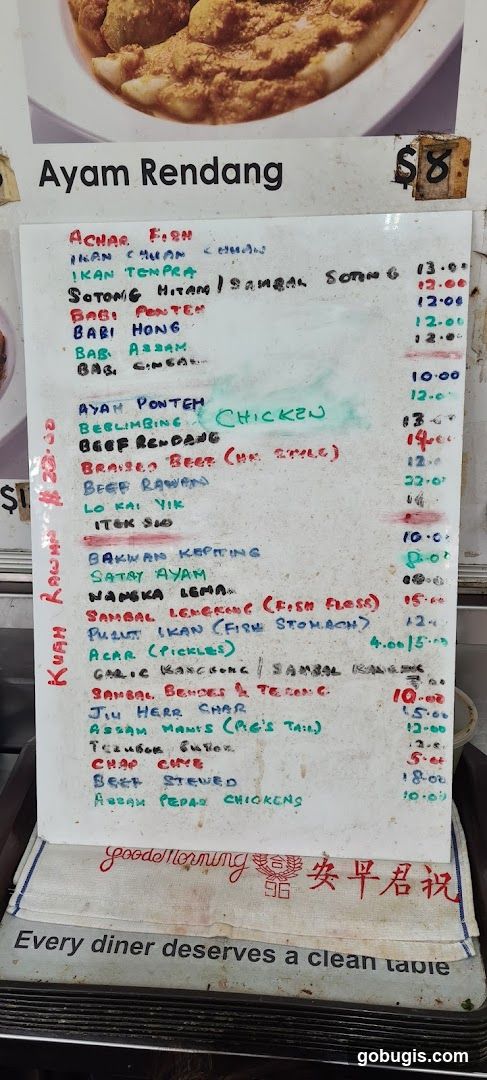 Ayam Rendang $8
ACHAR FISH
IKAN CHUAN CHUAN
IKAN TENPRA
SOTONG HITAM / SAMBAL SOTONG 13.00
BABI PONTEH 12.00
BABI HONG 12.00
BABI ASSAM 12.00
BABI 12.00
10.00
AYAM PONTEH 12.00
BEBLIMBING CHICKEN
BEEF RENDANG 13.00
BRAISED BEEF (HK STYLE) 14.00
BEEF RAWAN 12.00
LO KAI YIK 22.00
ITEK SIO 14
BAKWAN KEPITING 10.00
SATAY AYAM 8.00
NANGKA LEMAK 10.00
SAMBAL LENGKONG (FISH FLOSS) 15.00
PURUT IKAN (FISH STOMACH) 12
ACAR (PICKLES) 4.00/5.00
GARLIC KANGKONG / SAMBAL KANGKONG
SAMBAL BENDES & TERONG 10.00
JIU HERR CHAR 15.00
ASSAM MANIS (PIG'S TAIL) 12.00
TERUBOK
CHAP CHYE 5.00
BEEF STEWED 18.00
ASSAM PEDAS CHICKENS 10.00
KUAH RAWAN $20.00
Good Morning
安早君祝
Every diner deserves a clean table
gobugis.com